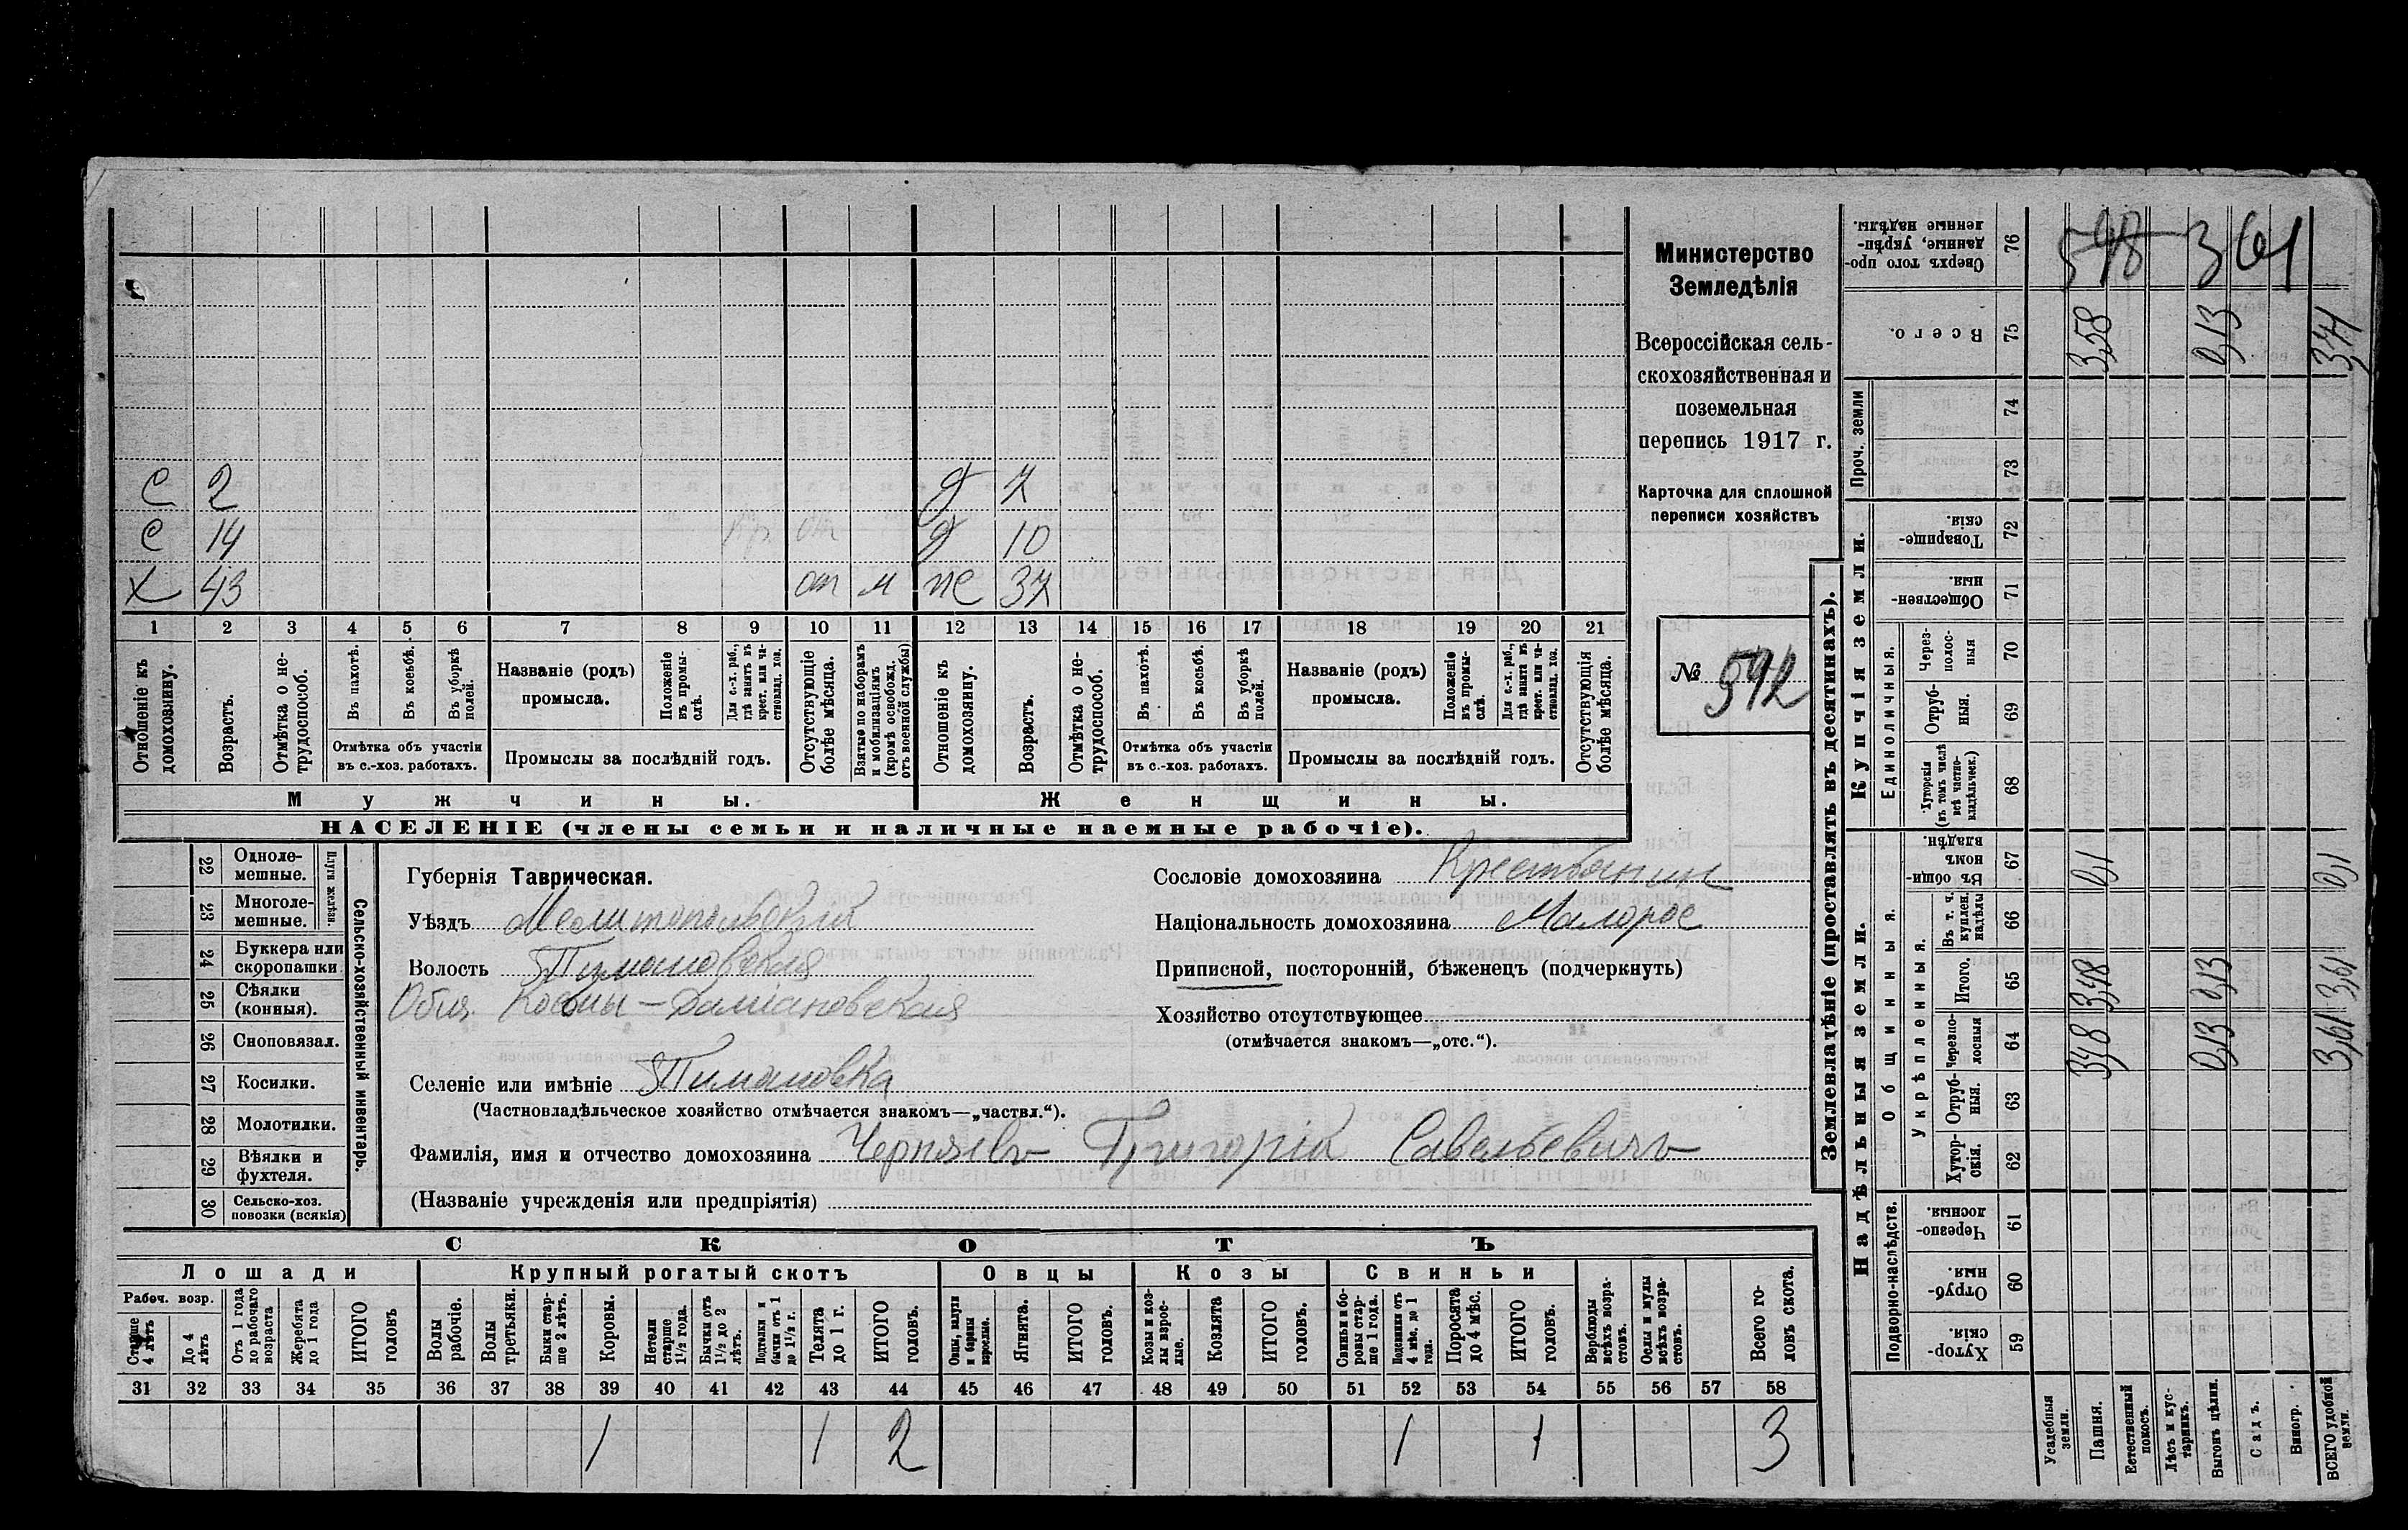 Министерство
Земледѣлія
Всероссійская сель-
скохозяйственная и
поземельная
перепись 1917 г.
Карточка для сплошной
переписи хозяйствъ
№ 592
С 2 д 7
С 14 от д 10
Х 43 от м же 37
1 2 3 4 5 6 7 8 9 10 11 12 13 14 15 16 17 18 19 20 21
Отношеніе къ домохозяину.
Возрастъ.
Отмѣтка о не-трудоспособ.
Въ пахотѣ.
Въ косьбѣ.
Въ уборкѣ полей.
Названіе (родъ) промысла.
Положеніе въ промы-слѣ.
Для с.-х. раб., гдѣ занятъ въ крест. или ча-стновлад. хоз.
Отсутствующіе болѣе мѣсяца.
Взятые по наборамъ и мобилизаціямъ (кромѣ освобожд. отъ военной службы)
Отношеніе къ домохозяину.
Возрастъ.
Отмѣтка о не-трудоспособ.
Въ пахотѣ.
Въ косьбѣ.
Въ уборкѣ полей.
Названіе (родъ) промысла.
Положеніе въ промы-слѣ.
Для с.-х. раб., гдѣ занята въ крест. или ча-стновлад. хоз.
Отсутствующія болѣе мѣсяца.
Отмѣтка объ участіи въ с.-хоз. работахъ.
Промыслы за послѣдній годъ.
Отмѣтка объ участіи въ с.-хоз. работахъ.
Промыслы за послѣдній годъ.
Мужчины.
Женщины.
НАСЕЛЕНІЕ (члены семьи и наличные наемные рабочіе).
Сельско-хозяйственный инвентарь.
Плуги желѣзн.
22 Однолемешные.
23 Многолемешные.
24 Буккера или скоропашки
25 Сѣялки (конныя).
26 Сноповязал.
27 Косилки.
28 Молотилки.
29 Вѣялки и фухтеля.
30 Сельско-хоз. повозки (всякія)
Губернія Таврическая.
Уѣздъ Мелитопольскій
Волость Тимановская
Общ. Косьмы-Даміановская
Селеніе или имѣніе Тимановка
(Частновладѣльческое хозяйство отмѣчается знакомъ—„частвл.“).
Фамилія, имя и отчество домохозяина Григорій Савельевичъ
(Названіе учрежденія или предпріятія)
Сословіе домохозяина Крестьянин
Національность домохозяина Малорос
Приписной, посторонній, бѣженецъ (подчеркнуть)
Хозяйство отсутствующее
(отмѣчается знакомъ—„отс.“).
СКОТЪ
Лошади Крупный рогатый скотъ Овцы Козы Свиньи
Рабоч. возр.
Старше 4 лѣтъ
До 4 лѣтъ
Отъ 1 года до рабочаго возраста
Жеребята до 1 года
ИТОГО головъ
Волы рабочіе.
Волы третьяки.
Быки стар-ше 2 лѣтъ.
Коровы.
Нетели старше 1½ года.
Бычки отъ 1½ до 2 лѣтъ.
Подтелки и бычки отъ 1 до 1½ г.
Телята до 1 г.
ИТОГО головъ.
Овцы, валухи и бараны взрослые.
Ягнята.
ИТОГО головъ.
Козы и коз-лы взрос-лые.
Козлята
ИТОГО головъ.
Свиньи и бо-ровы стар-ше 1 года.
Подсвинки отъ 4 мѣс. до 1 года.
Поросята до 4 мѣс.
ИТОГО головъ.
Верблюды всѣхъ возра-стовъ.
Ослы и мулы всѣхъ возра-стовъ.
Всего го-ловъ скота.
31 32 33 34 35 36 37 38 39 40 41 42 43 44 45 46 47 48 49 50 51 52 53 54 55 56 57 58
1 1 2 1 1 3
Землевладѣніе (проставлять въ десятинахъ).
Надѣльныя земли. Купчія земли. Проч. земли
Подворно-наслѣдств.
Общинныя.
Укрѣпленныя.
Единоличныя.
76 Сверхъ того про-данные, укрѣп-ленные надѣлы. 548 361
75 Всего. 3,58 0,13 3,71
74
73
72 Товарище-скія.
71 Обществен-ныя.
70 Через-полос-ныя
69 Отруб-ныя.
68 Хуторскія (въ томъ числѣ всѣ частно-владѣльческ.)
67 Въ общин-номъ владѣн. 0,1 0,1
66 Въ т. ч. куплен. надѣлы
65 Итого. 3,48 0,13 3,61
64 Черезпо-лосныя 3,48 0,13 3,61
63 Отруб-ныя.
62 Хутор-скія.
61 Черезпо-лосныя.
60 Отруб-ныя.
59 Хутор-скія.
Усадебныя земли.
Пашня.
Естественный покосъ.
Лѣсъ и кус-тарникъ.
Выгонъ цѣлин.
Садъ.
Виногр.
ВСЕГО удобной земли.